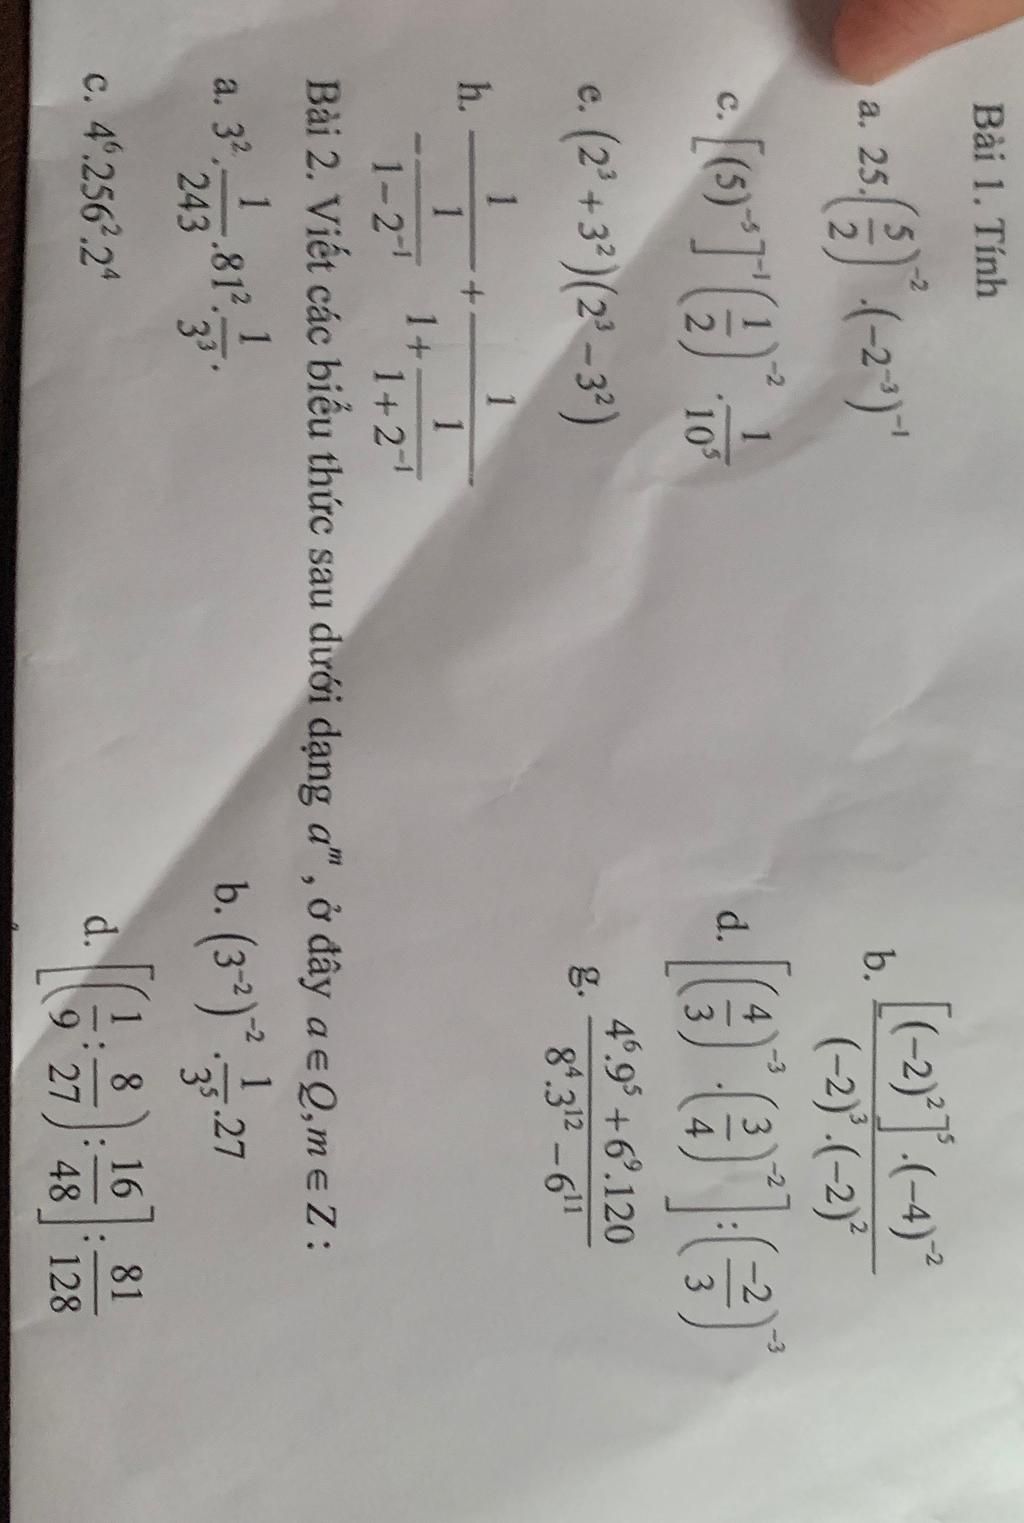 Bài 1. Tính
a. 25.(5/2)⁻².(−2⁻³)⁻¹
b. [(−2)²]⁵.(−4)⁻² / (−2)³.(−2)²
c. [(5)⁻⁵]⁻¹(1/2)⁻².1/10⁵
d. [(4/3)⁻³.(3/4)⁻²]:(−2/3)⁻³
e. (2³+3²)(2³−3²)
g. 4⁶.9⁵+6⁹.120 / 8⁴.3¹²−6¹¹
h. 1/(−1/(1−2⁻¹)) + 1/(1+1/(1+2⁻¹))
Bài 2. Viết các biểu thức sau dưới dạng aᵐ, ở đây a∈Q,m∈Z:
a. 3².1/243.81².1/3³.
b. (3⁻²)⁻².1/3⁵.27
c. 4⁶.256².2⁴
d. [(1/9:8/27):16/48]:81/128